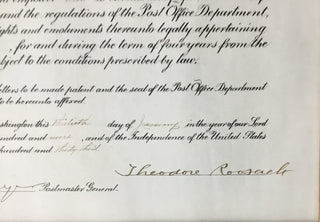 and the regulations of the Post Office Department,
ights and emoluments thereunto legally appertaining
, for and during the term of four years from the
bject to the conditions prescribed by law.
etters to be made patent and the seal of the Post Office Department
to be hereunto affixed.
shington this day of January in the year of our Lord
hundred and , and of the Independence of the United States
hundred and thirty first.
Theodore Roosevelt
Postmaster General.